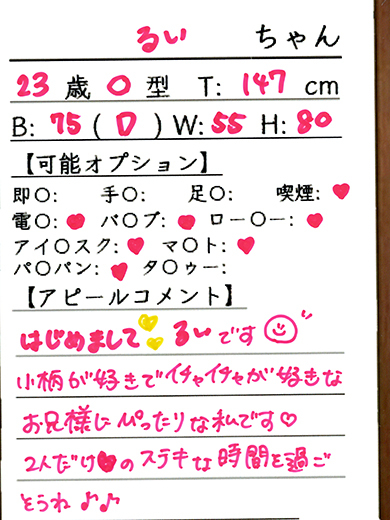 るい ちゃん
23歳 O型 T: 147cm
B: 75(D) W:55 H:80
【可能オプション】
即〇: 手〇: 足〇: 喫煙:♥
電〇:♥ バ〇ブ:♥ ロー〇ー:♥
アイ〇スク:♥ マ〇ト:♥
パ〇パン:♥ タ〇ゥー:
【アピールコメント】
はじめまして💛💛るいです☺
小柄が好きでイチャイチャが好きな
お兄様にぴったりな私です♡
2人だけ♥のステキな時間を過ご
そうね♪♪